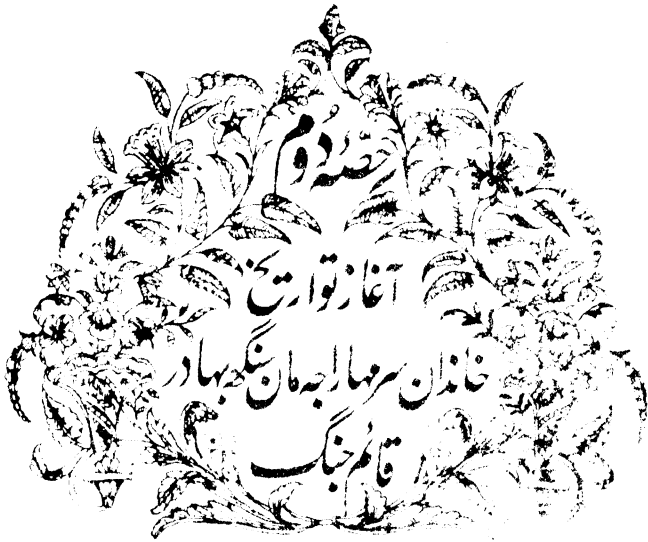 حصّہ دُوم
آغاز تواریخ
خاندان سرمہاراجہ مان سنگھ بہادر
قائم جنگ